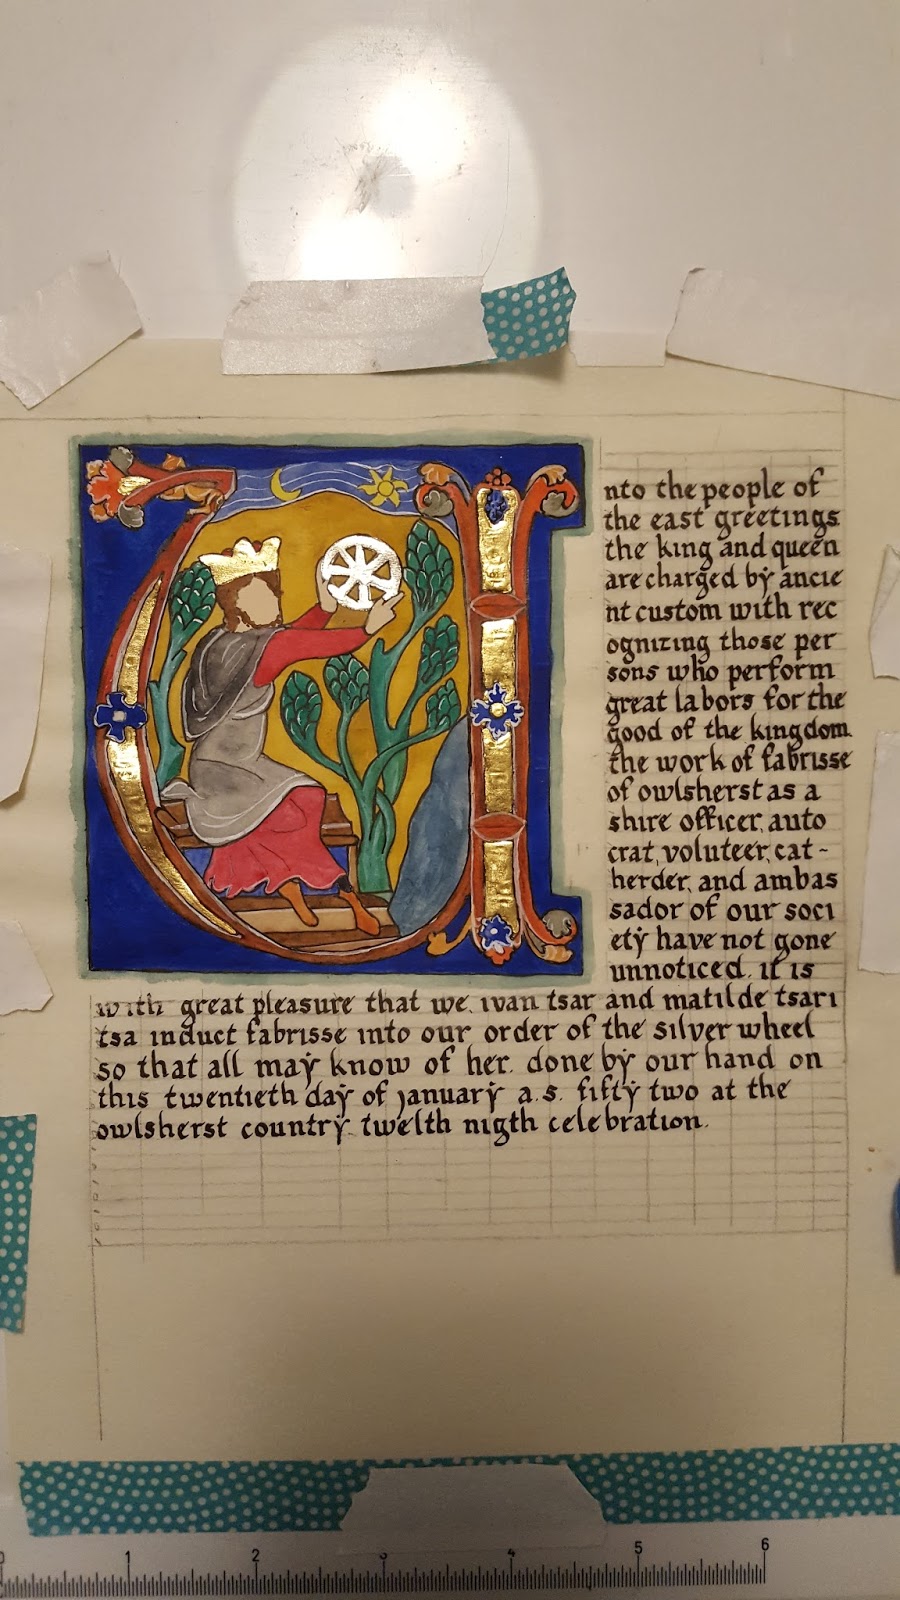 U
nto the people of
the east greetings
the king and queen
are charged by ancie
nt custom with rec
ognizing those per
sons who perform
great labors for the
good of the kingdom
the work of fabrisse
of owlsherst as a
shire officer, auto
crat, voluteer, cat-
herder, and ambas
sador of our soci
ety have not gone
unnoticed. it is
with great pleasure that we, ivan tsar and matilde tsari
tsa induct fabrisse into our order of the silver wheel
so that all may know of her. done by our hand on
this twentieth day of january a.s. fifty two at the
owlsherst country twelth nigth celebration.
0 1 2 3 4 5 6